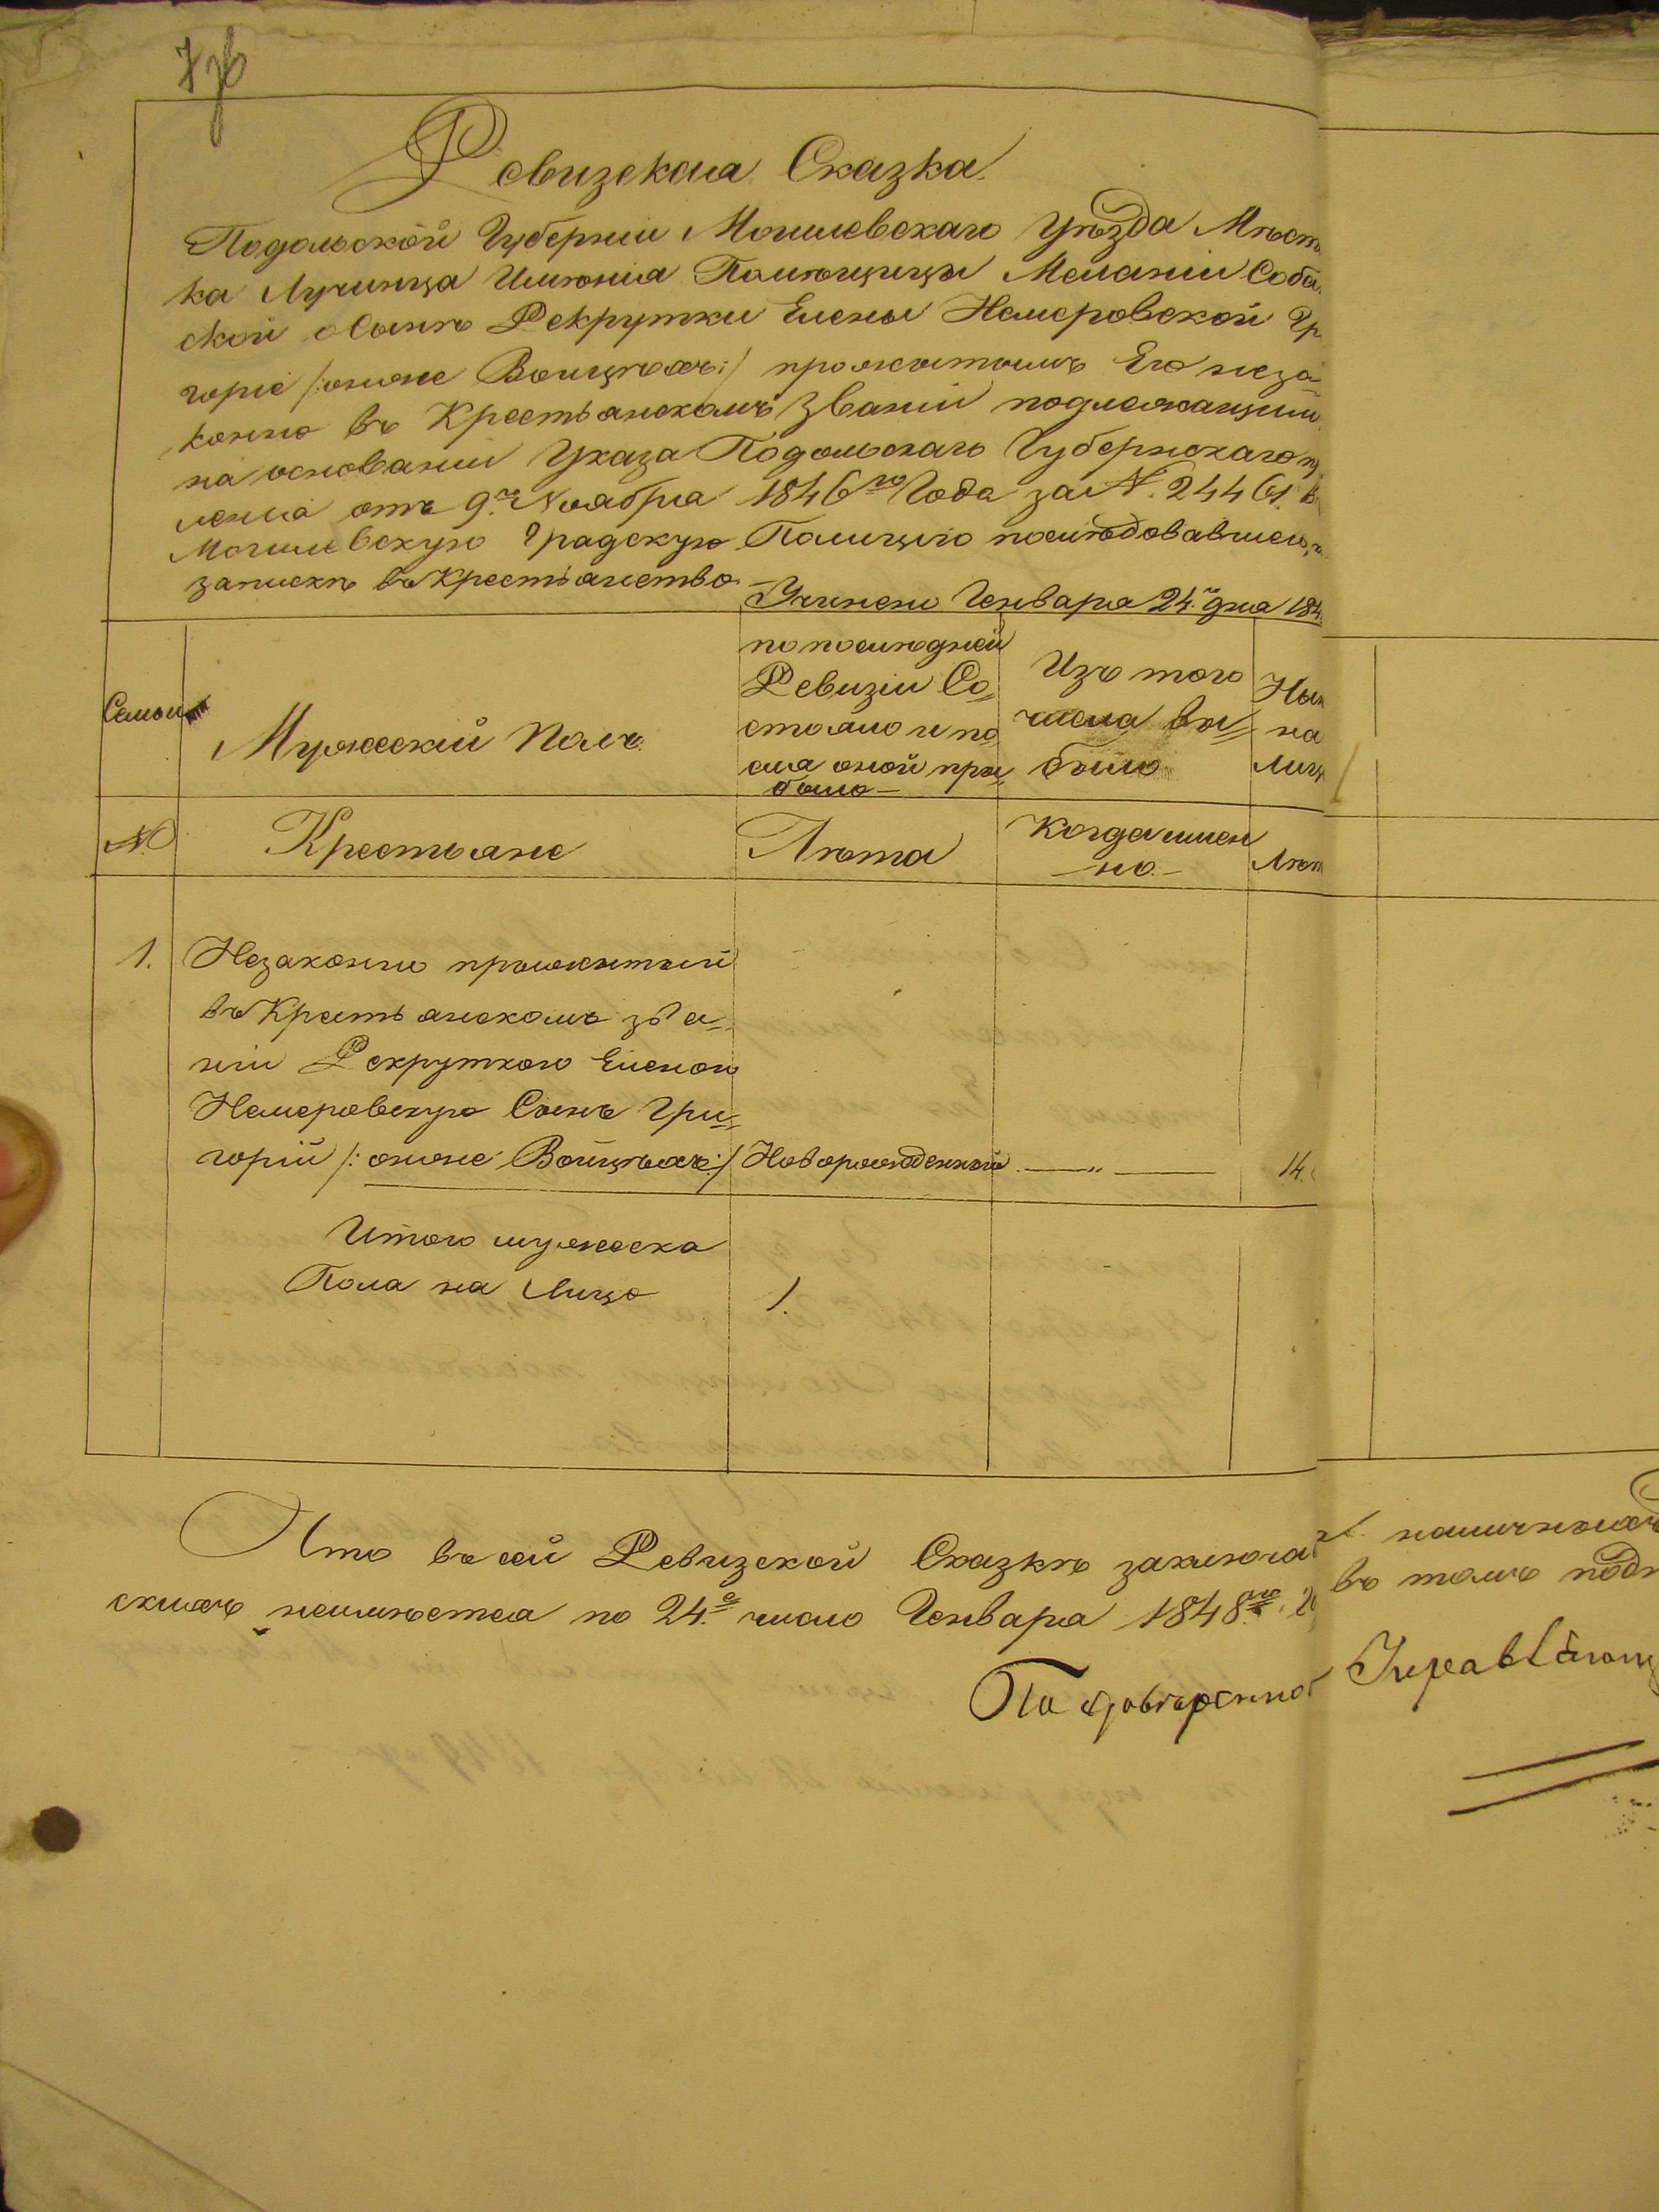 Ревизская Сказка.
Подольской Губернии Могилевскаго Уѣзда Мѣст
ка Лучинца Имѣнія Помѣщицы Меланіи Соба
ской о Сынѣ Рекрутки Елены Немеровской Гр
горіе /: онже Войцѣхъ :/ прожитымъ Ею неза-
конно въ Крестьянскомъ Званіи подлежащим
на основаніи Указа Подольскаго Губернскаго
ленія отъ 9го Ноября 1846го Года за N. 24461. в
Могилевскую Градскую Полицію послѣдовавшего,
запискѣ въ Крестьянство —
Учинена Генваря 24го дня 184
Семьи
Мужескій Полъ.
по послѣдней
Ревизіи Со=
стояло и по
сля оной при=
было —
Изъ того
числа вы=
было
Нын
на
Лиц
N.
Крестьяне
Лѣта
Когда имен
но. —
Лѣт
1.
Незаконно прижитый
въ Крестьянскомъ зва=
ніи Рекруткою Еленою
Немеровскую Сынъ Гри=
горій /: онже Войцѣхъ :/ Новорожденный — „ — 14.
Итого мужеска
Пола на Лицо 1.
Что въ сей Ревизской Сказкѣ заключа наличныхъ
скихъ неимѣется по 24е число Генваря 1848го въ томъ подп
По довѣренно Управляющ